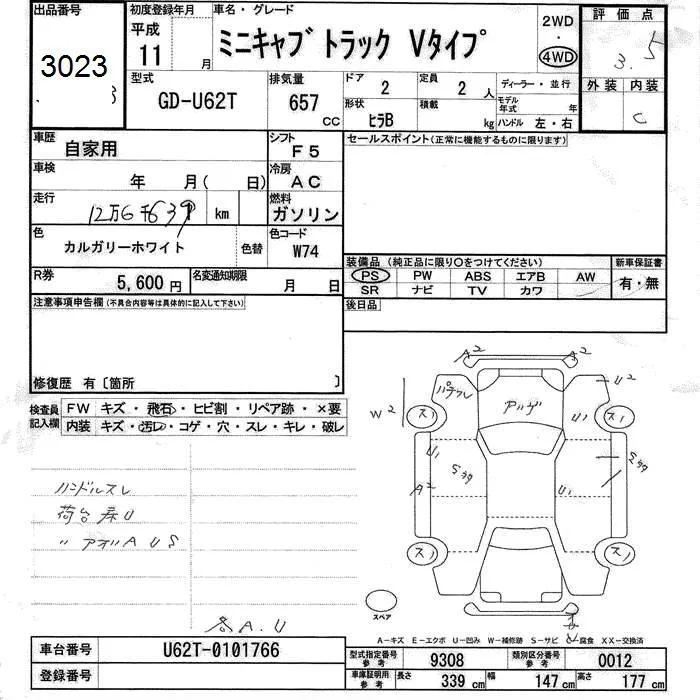 出品番号
3023
初度登録年月
平成
11 月
車名・グレード
ミニキャブ トラック Vタイプ
2WD
・
4WD
評価点
3.5
外装 内装
C
型式
GD-U62T
排気量
657
CC
ドア
2
定員
2 人
ディーラー・並行
モデル年式 年
形状
ヒラB
積載
kg
ハンドル 左・右
車歴
自家用
シフト
F5
セールスポイント(正常に機能するものに限ります)
車検
年 月( 日)
冷房
AC
走行
12万6千639 km
燃料
ガソリン
色
カルガリーホワイト
色替
色コード
W74
装備品 (純正品に限り○をつけてください)
新車保証書
PS PW ABS エアB AW
有・無
SR ナビ TV カワ
R券
5,600 円
名変通知期限
月 日
後日品
注意事項申告欄(不具合内容等は具体的に記入して下さい)
修復歴 有〔箇所 〕
検査員
記入欄
FW キズ・飛石・ヒビ割・リペア跡・×要
内装 キズ・汚レ・コゲ・穴・スレ・キレ・破レ
ハンドルスレ
荷台 U
〃 アオリA U S
A.U
A2
A2
パテワレ
アルゲ
U2
W2
ス
U1
ス
U1
A2
U1
ス
ス
スペア
A-キズ E-エクボ U-凹み W-補修跡 S-サビ C-腐食 XX-交換済
車台番号
U62T-0101766
登録番号
型式指定番号
参考
9308
類別区分番号
参考
0012
車庫証明用
参考
長さ
339 cm
幅
147 cm
高さ
177 cm